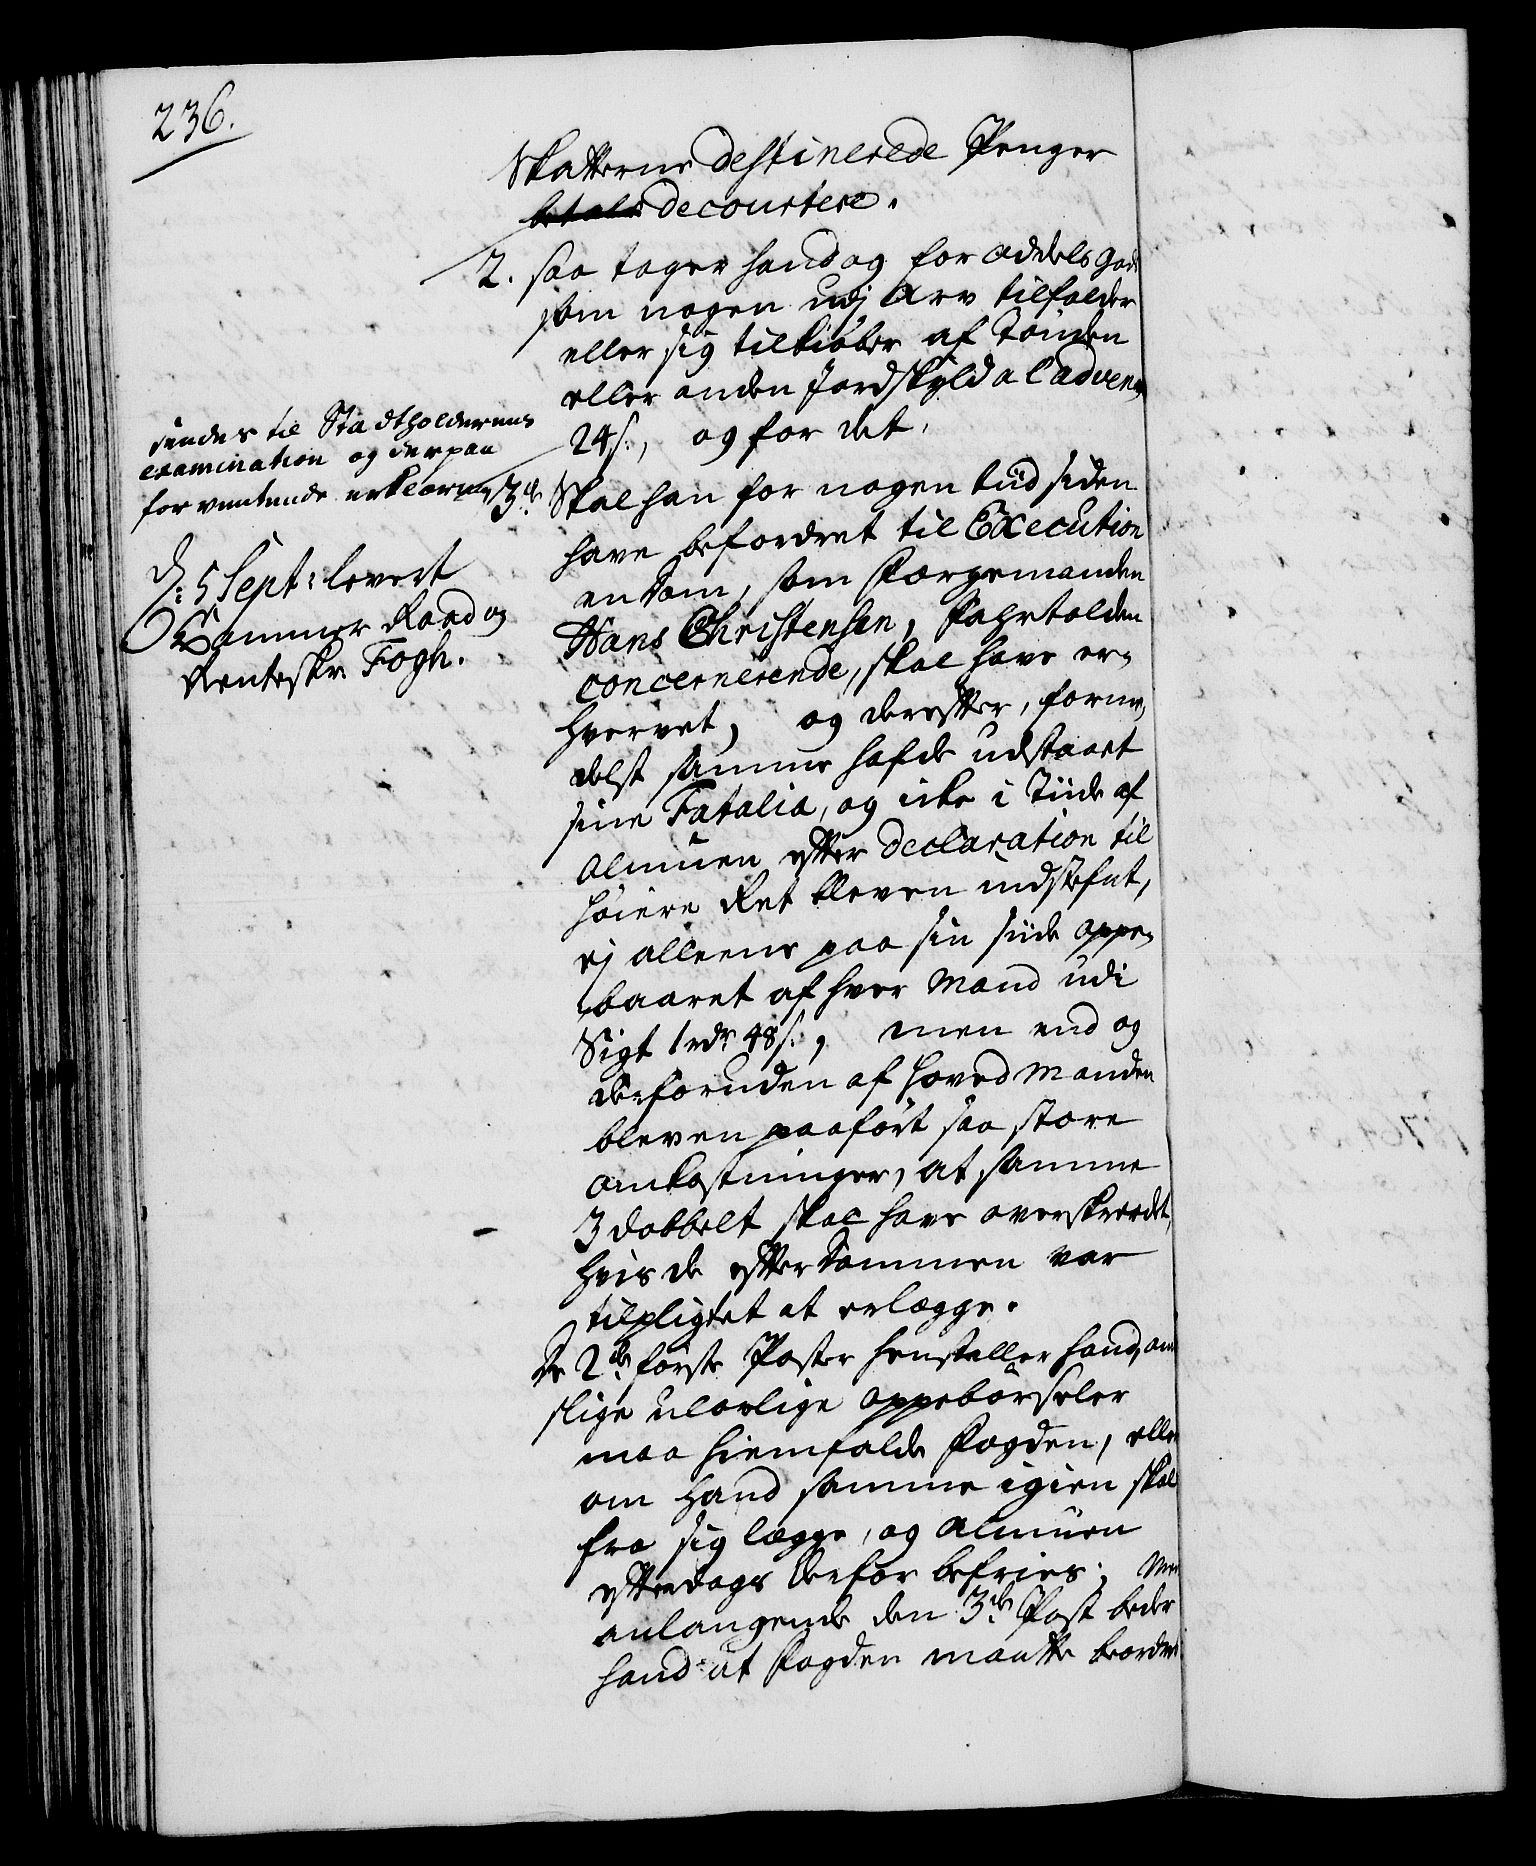 236.
Skatterne destinerede Penger
betale decourtere.
2. saa tager hand og for odels god
som nogen udj Arv tilfalder
eller sig tilkiøber af Tønden
eller anden Jordskyld a l'advena
24 s., og for det,
sendes til Stadtholderens
examination og derpaa
forventende erklæring
d: 5 Sept: levert
Cammer Raad og
Renteskr. Fogh.
3de Skal han for nogen tiid siden
have befordret til Execution
en dom, som Sorgemanden
Hans Christensen,
concernerende, skal have er-
hvervet, og derefter, forme-
delst samme hafde udstaaet
sine Fatalia, og icke i Tiide af
Almuen efter declaration til
høiere Ret bleven indstefnt,
ej alleene paa sin siide oppe-
baaret af hver Mand udi
Sigt 1 rdr 48 s., men end og
desforuden af hoved Manden
bleven paaført saa store
omkostninger, at samme
3 dobbelt skal have overskreedet,
hvis de efter dommen var
tilpligtet at erlægge.
De 2de første Poster henstiller hand, om
slige ulovlige oppebørseler
maa hiemfalde Fogden, eller
om hand samme igien skal
fra sig lægge, og Almuen
efterdags derfor befries; Men
anlangende den 3de Post beder
hand at Fogden maatte beordres